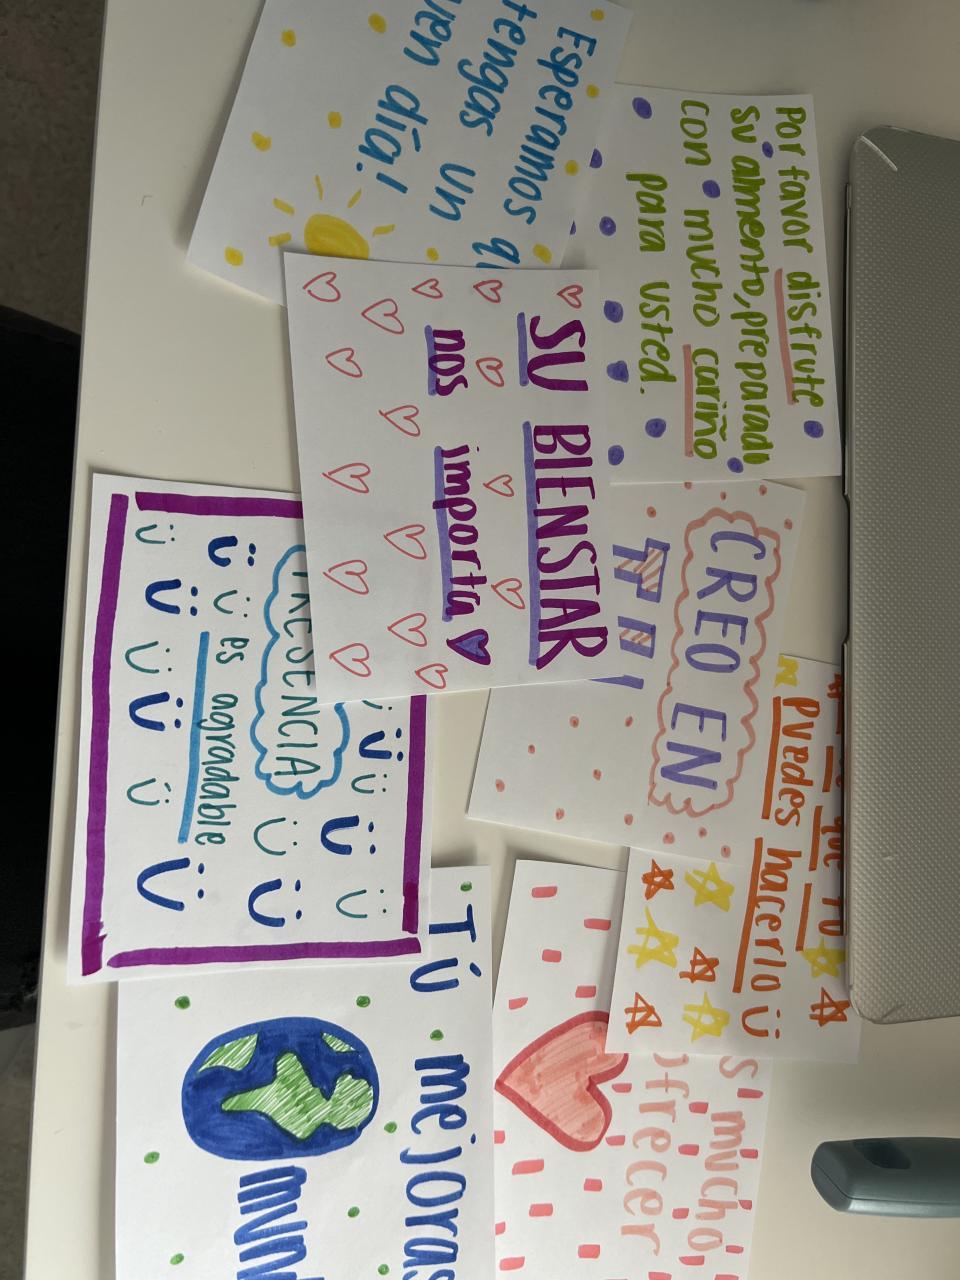 Esperamos
tengas un
día!
Por favor disfrute
su almento, preparado
con mucho cariño
para usted.
SU BIENSTAR
nos importa
CREO EN
TI
que TÚ
puedes hacerlo
PRESENCIA
es agradable
TÚ mejoras
mucho,
ofrecer